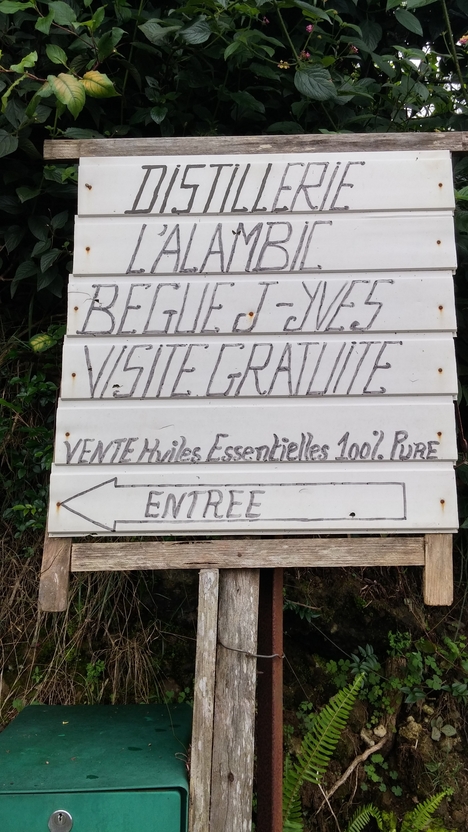 DISTILLERIE
L'ALAMBIC
BEGUE J-YVES
VISITE GRATUITE
VENTE Huiles Essentielles 100% PURE
ENTREE